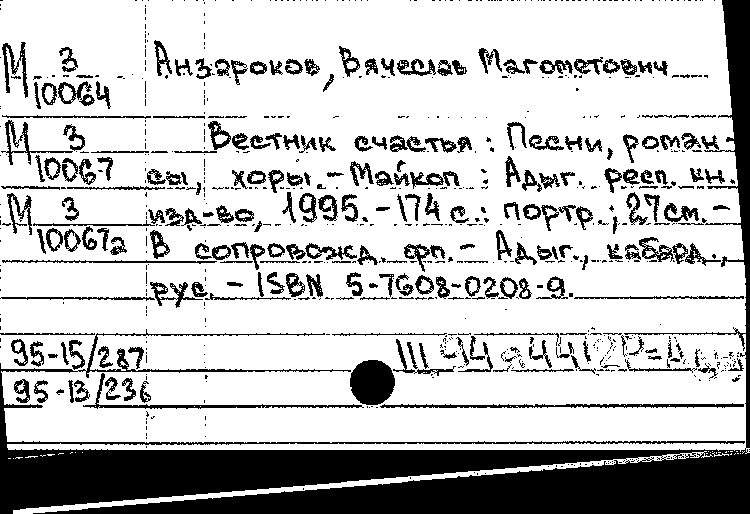 М 3 Анзароков, Вячеслав Магометович
10064
М 3 Вестник счастья : Песни, роман-
10067 сы, хоры. - Майкоп : Адыг. респ. кн.
М 3 изд-во, 1995. - 174 с. : портр. ; 27см. -
10067а В сопровожд. фп. - Адыг., кабард.,
рус. - ISBN 5-7608-0208-9.
95-15/287 III 94 я44(2Р=А
95-13/236